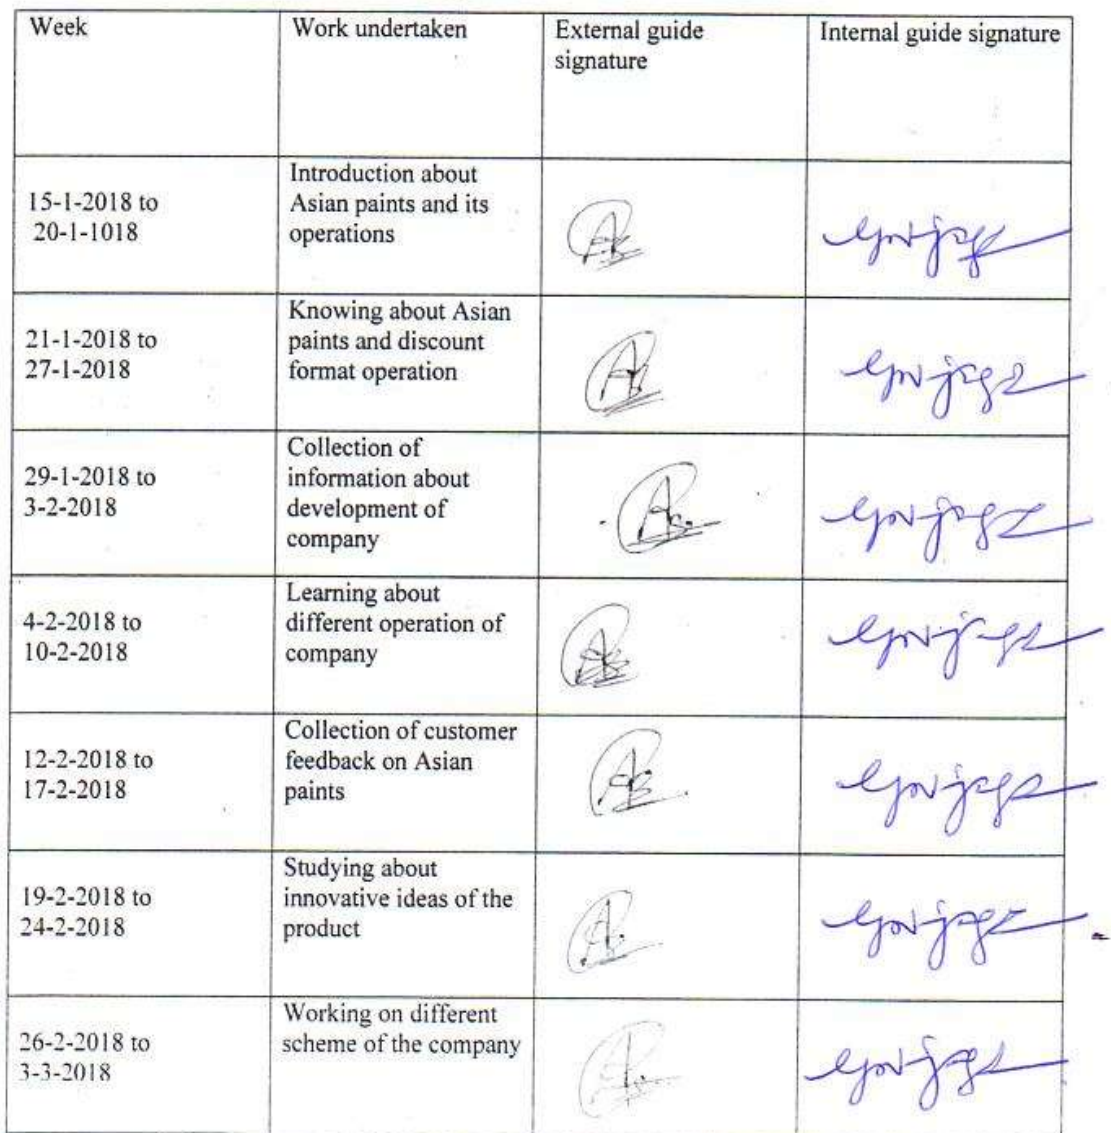 Week
Work undertaken
External guide
signature
Internal guide signature
15-1-2018 to
20-1-1018
Introduction about
Asian paints and its
operations
21-1-2018 to
27-1-2018
Knowing about Asian
paints and discount
format operation
29-1-2018 to
3-2-2018
Collection of
information about
development of
company
4-2-2018 to
10-2-2018
Learning about
different operation of
company
12-2-2018 to
17-2-2018
Collection of customer
feedback on Asian
paints
19-2-2018 to
24-2-2018
Studying about
innovative ideas of the
product
26-2-2018 to
3-3-2018
Working on different
scheme of the company